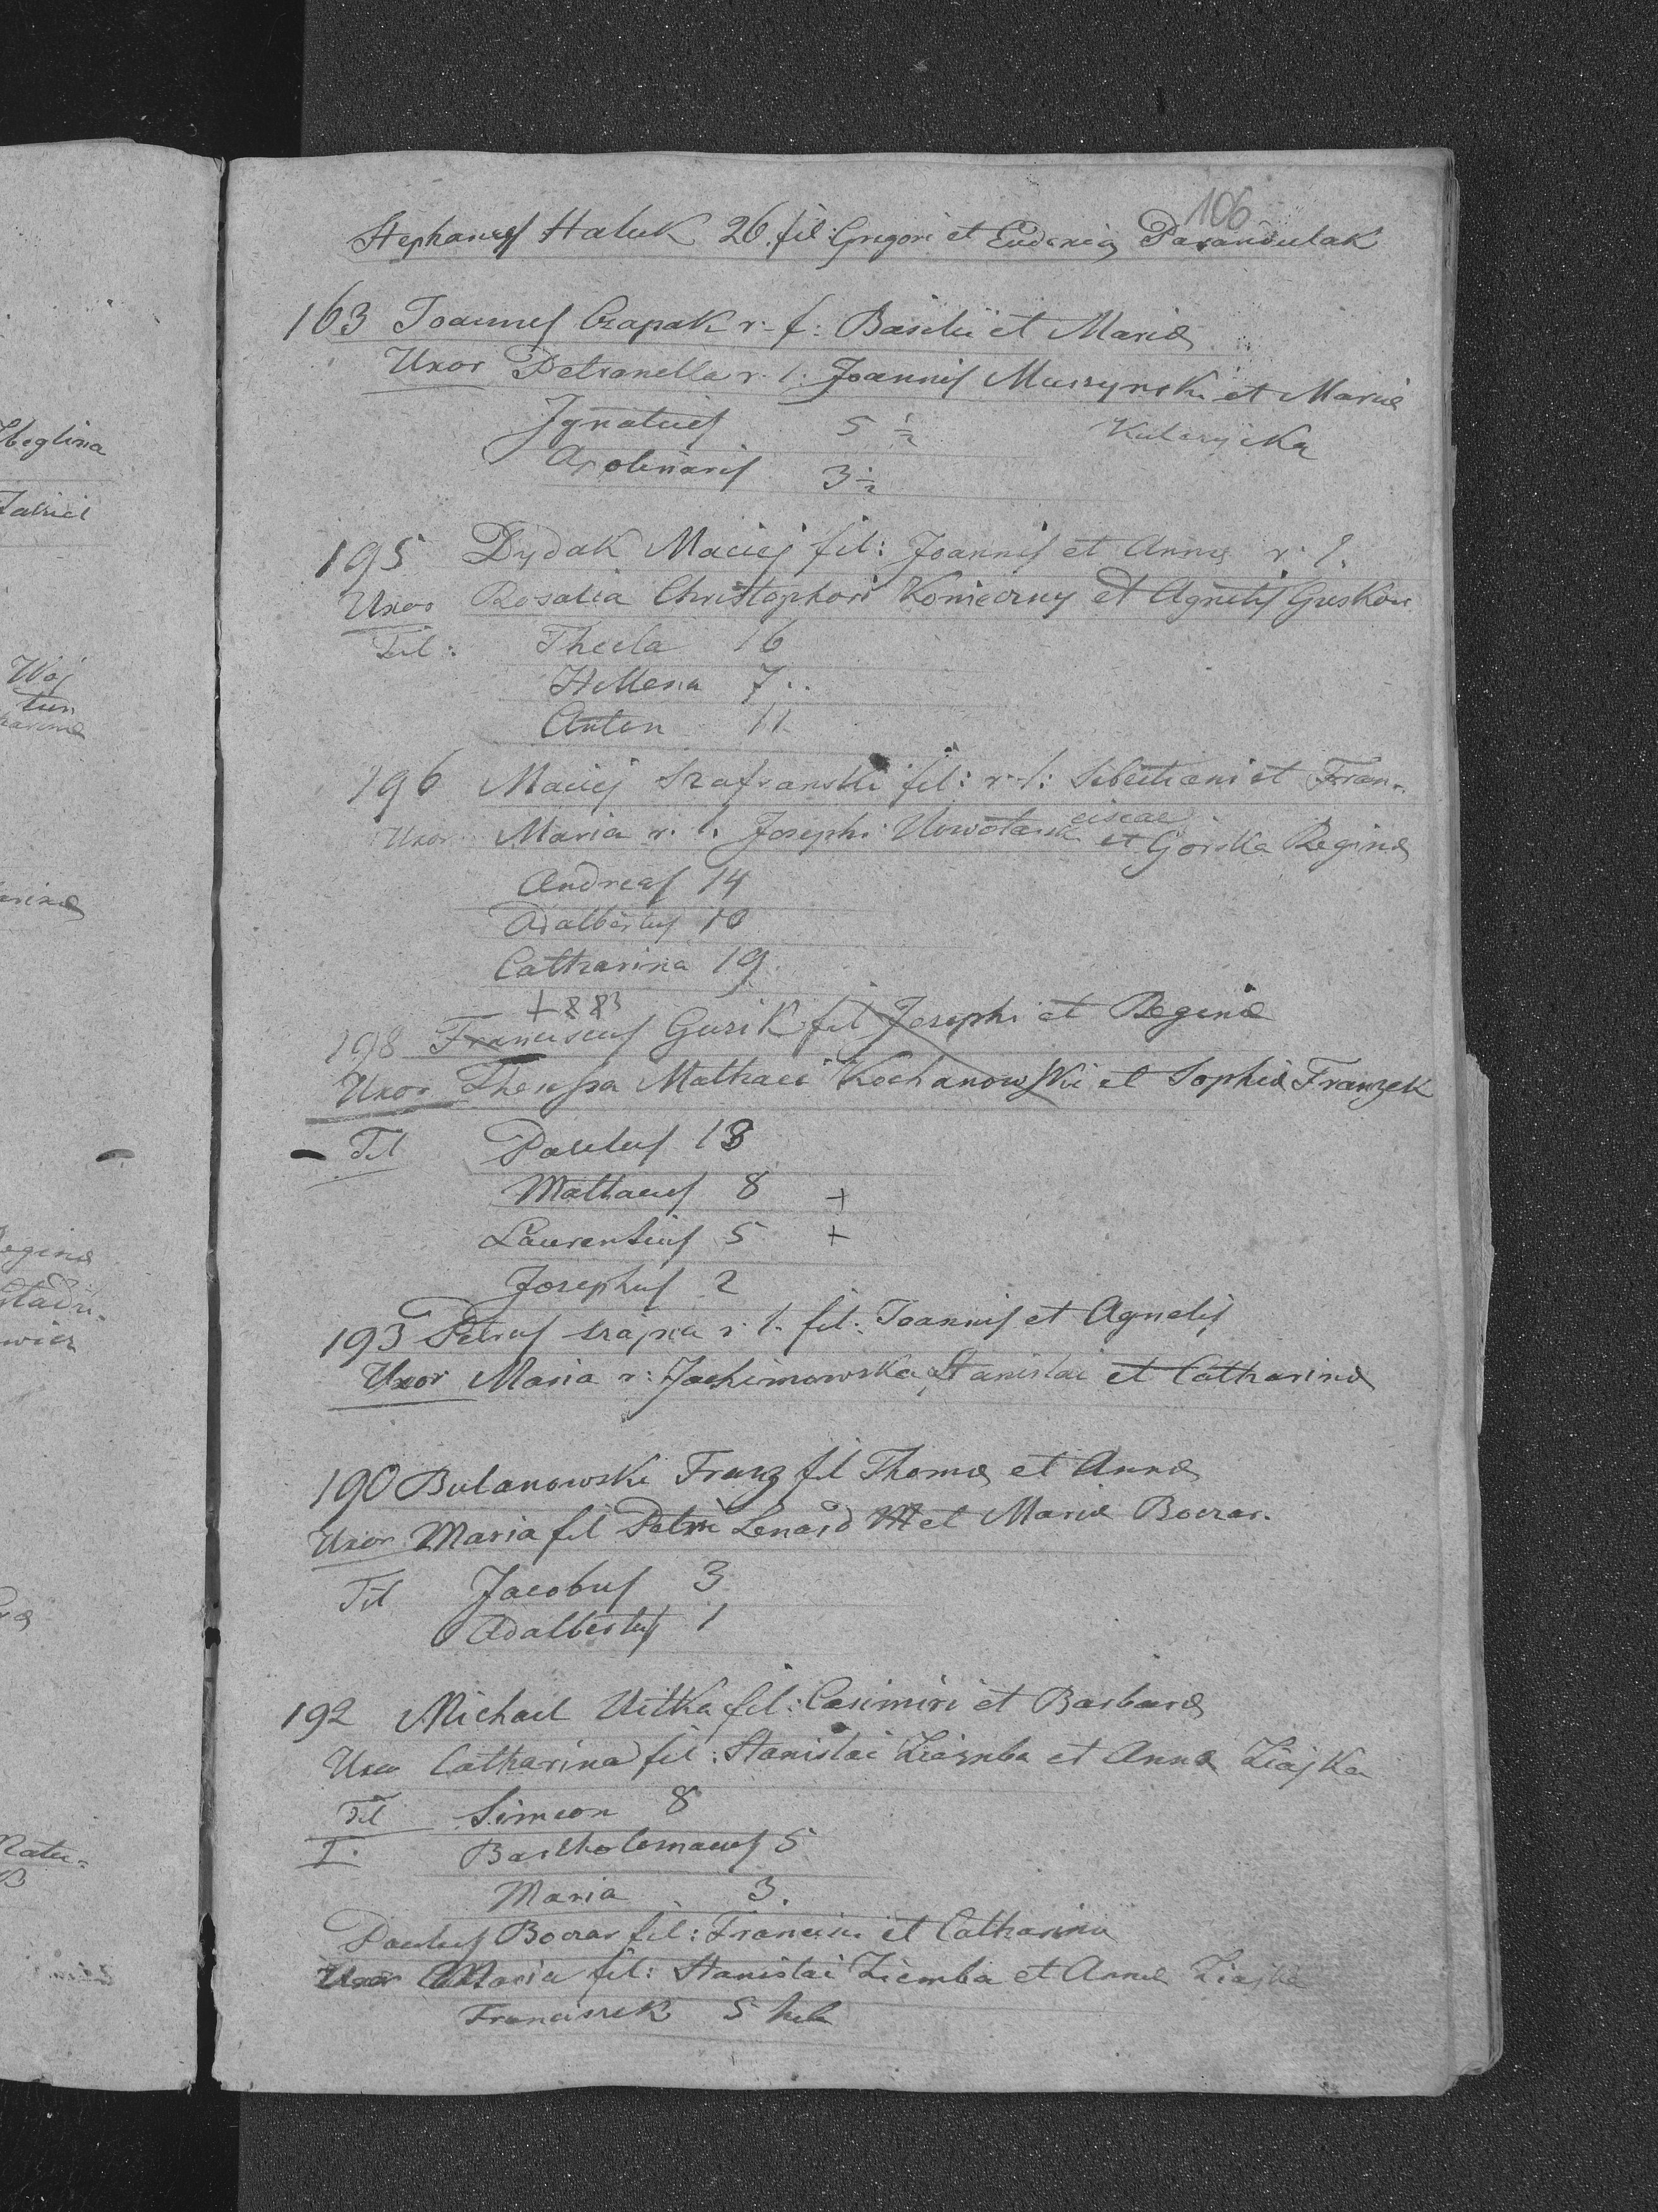 106
Stephanus Haluk 26. fil: Gregori et Eudoxia Parandulak
163 Joannes Czapak r. f: Basilii et Mariæ
Uxor Petronella r. l. Joannis Muszynski et Mariæ
Ignatius 5 ½ Kulczycka
Apolinaris 3 ½
195 Dydak Maciej fil: Joannis et Annæ r. l.
Uxor Rosalia Christophori Konieczny et Agnetis
Fil: Thecla 16
Hellena 7..
Anton 11
196 Maciej Szafranski fil: r. l: Sebestiani et Fran-
ciscae
Uxor Maria r. l. Josephi et Górska Reginæ
Andreas 14
Adalbertus 10
Catharina 19
+ 883
198 Franciscus Gusik fil Josephi et Reginæ
Uxor Theressa Mathaei Kochanowski et Sophiæ Franzek
Fil Paulus 13
Mathaeus 8 +
Laurentius 5 +
Josephus 2
193 Petrus Szajna r. l. fil: Joannis et Agnetis
Uxor Maria r: Jachimowska Stanislai et Catharinæ
190 Bulanowski Franz fil Thomæ et Annæ
Uxor Maria fil Petri Lenard et Mariæ Boczar.
Fil Jacobus 3
Adalbertus 1
192 Michael Witka fil: Casimiri et Barbaræ
Uxor Catharina fil: Stanislai Ziemba et Annæ Ziajka
Fil Simeon 8
I. Bartholomaeus 5
Maria 3.
Paulus Boczar fil: Francisci et Catharinæ
Uxor Maria fil: Stanislai Ziemba et Annæ Ziajka
Franciszek 5